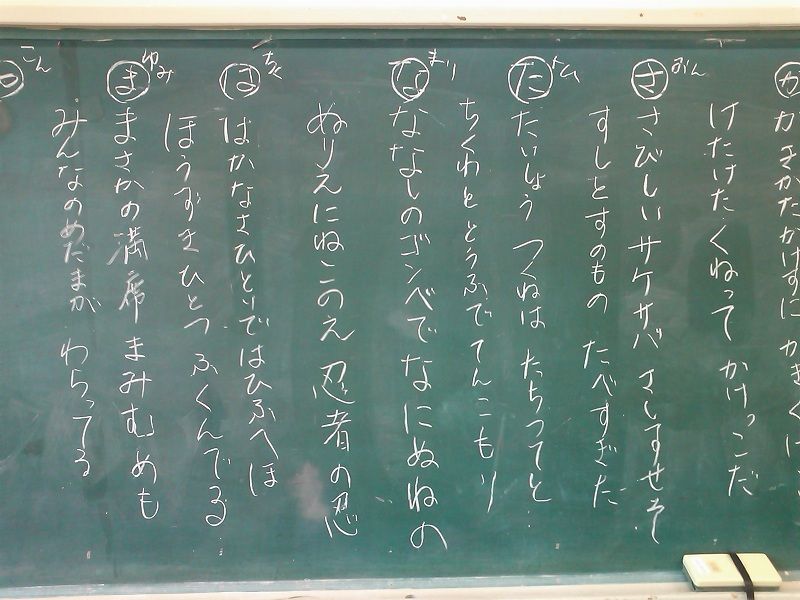 か
かきかたかけずに かきくけこ
けたけた くねって かけっこだ
さ
さびしいサケサバ さしすせそ
すしとすのもの たべすぎた
た トム
たいしょう つくねは たちつてと
ちくわと とうふで てんこもり
な まり
ななしのゴンベで なにぬねの
ぬりえにねこのえ 忍者の忍
は ちく
はかなさひとりで はひふへほ
ほうずきひとつ ふくんでる
ま ゆみ
まさかの満席 まみむめも
みんなのめだまが わらってる
こん